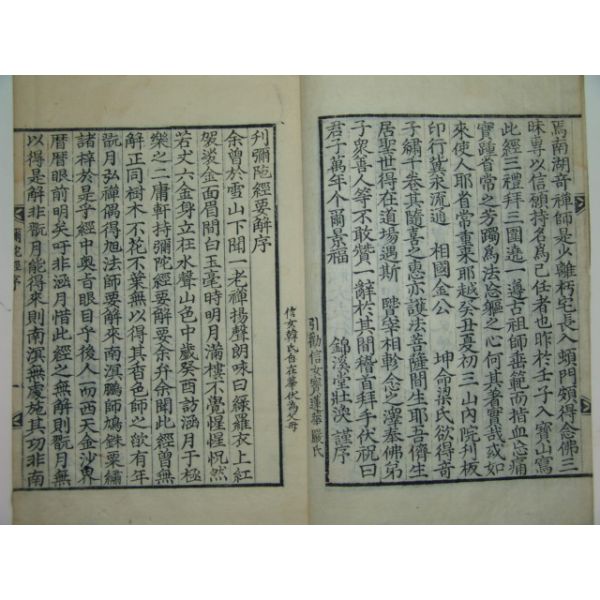 焉南湖奇禪師是少離朽宅長入頞門頗得念佛三
昧專以信願持名爲己任者也昨於壬子入寶山寫
此經三禮拜三圍遶一遵古祖師垂範而指血忘痛
實踵省常之芳躅爲法忘軀之心何其著實哉或如
來使人耶省常重來耶越癸丑夏初三山內院刋板
印行冀永流通 相國金公 坤命梁氏欲得奇
子繡千卷其隨喜之惠亦護法菩薩間生耶吾儕生
居聖世得在道場遇斯 暨宰相軫念之澤奉佛弟
子衆善人等不敢贊一辭於其間稽首拜手伏祝曰
君子萬年介爾景福
錦溪堂壯洪 謹序
引勸信女寗蓮華 嚴氏
信女韓氏自在華伏爲父母
刋彌陁經要解序
余曾於雪山下聞一老禪揚聲朗咏曰綠羅衣上紅
袈淡金面眉間白玉毫時明月滿樓不覺惺惺怳然
若丈六金身立在水聲山色中歲癸酉訪涵月于極
樂之二庸軒持彌陁經要解要余弁余聞此經曾無
解正同樹木不花不葉無以得其香色師之欲有年
翫月弘禪偶得旭法師要解來南溟鵬師鳩銖粟繡
諸梓於是乎經中奧旨眼目乎後人一而西天金沙界
曆曆眼前明矣吁非涵月惜此經之無解則翫月無
以得是解非翫月能得來則南溟無處施其功非南
彌陀經序